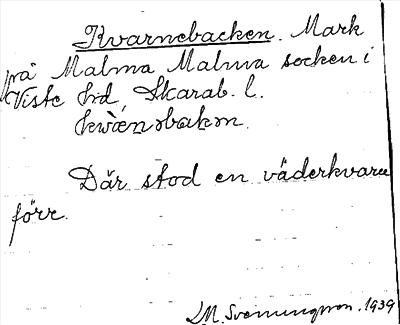 Kvarnebacken. Mark
på Malma Malma socken i
Viste hd, Skarab. l.
Där stod en väderkvarn
förr.
M. Svenungsson. 1939